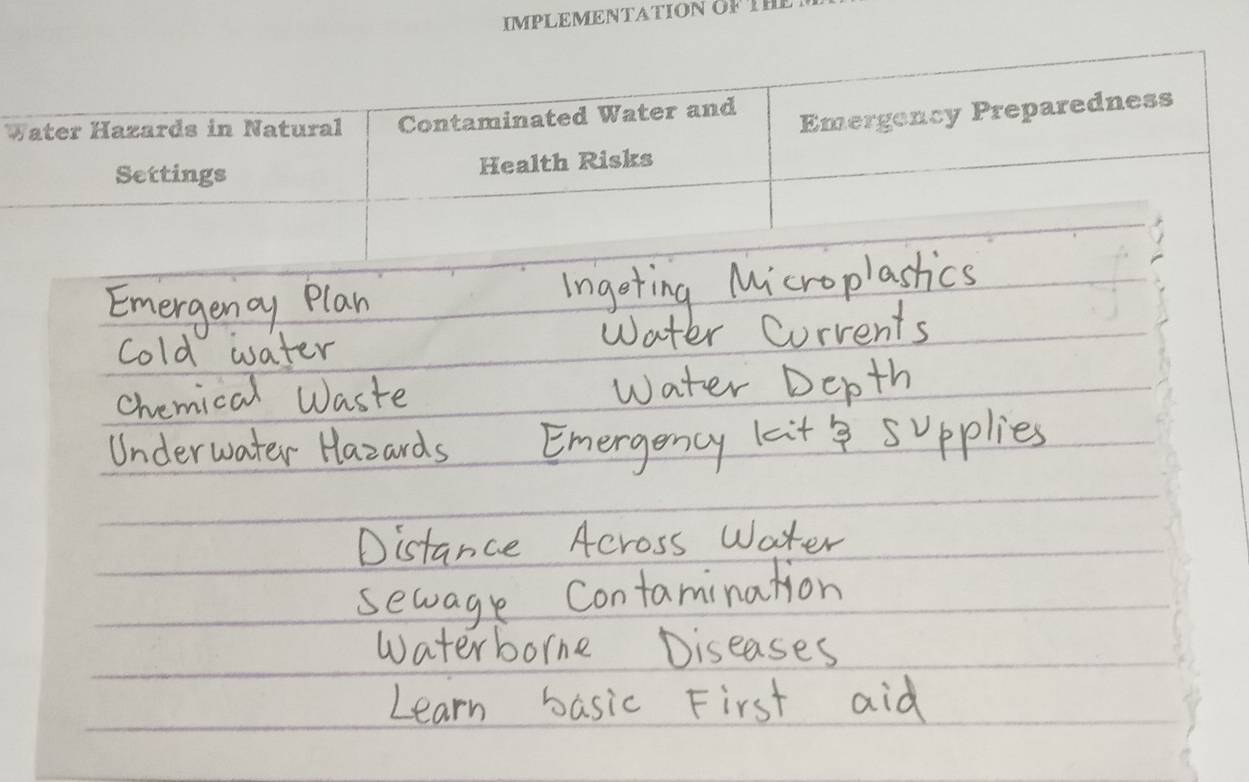 IMPLEMENTATION OF THE
Water Hazards in Natural Settings
Contaminated Water and Health Risks
Emergency Preparedness
Emergenay Plan
Ingeting Microplastics
Cold water
Water Currents
Chemical Waste
Water Depth
Underwater Hazards
Emergency kit & supplies
Distance Across Water
Sewage Contamination
Waterborne Diseases
Learn basic First aid